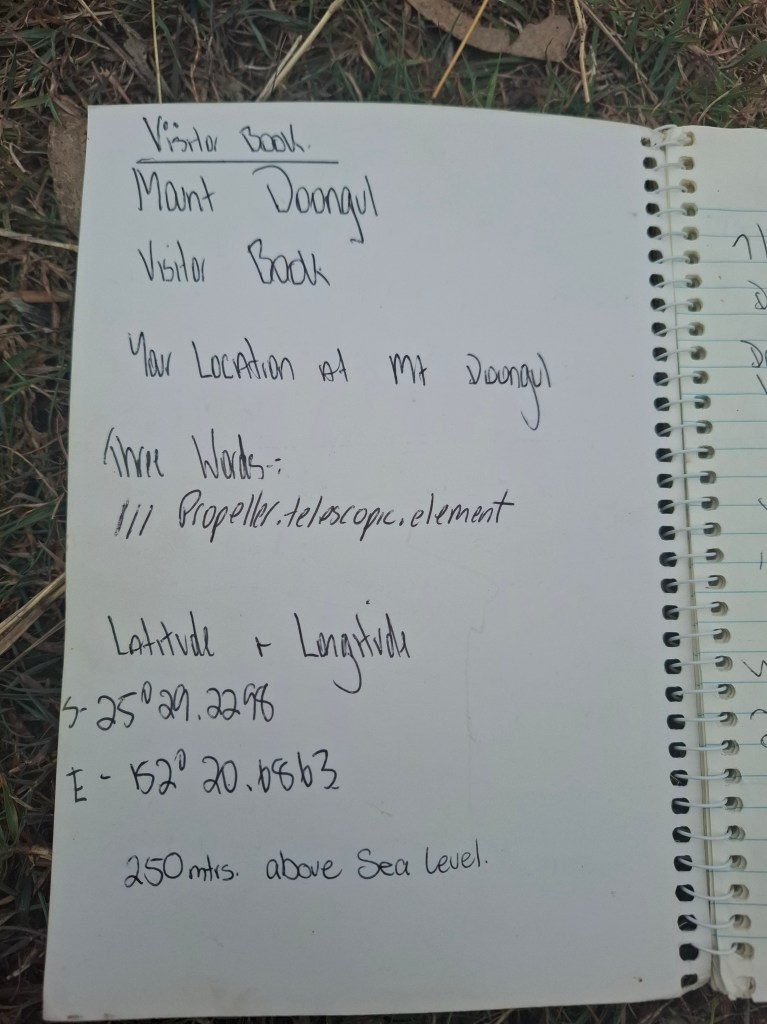 Visitor Book.
Mount Doongul
Visitor Book
Your Location At Mt Doongul
Three Words-:
/// Propeller.telescopic.element
Latitude + Longitude
S- 25° 29.2298
E - 152° 20.6863
250mtrs. above Sea Level.